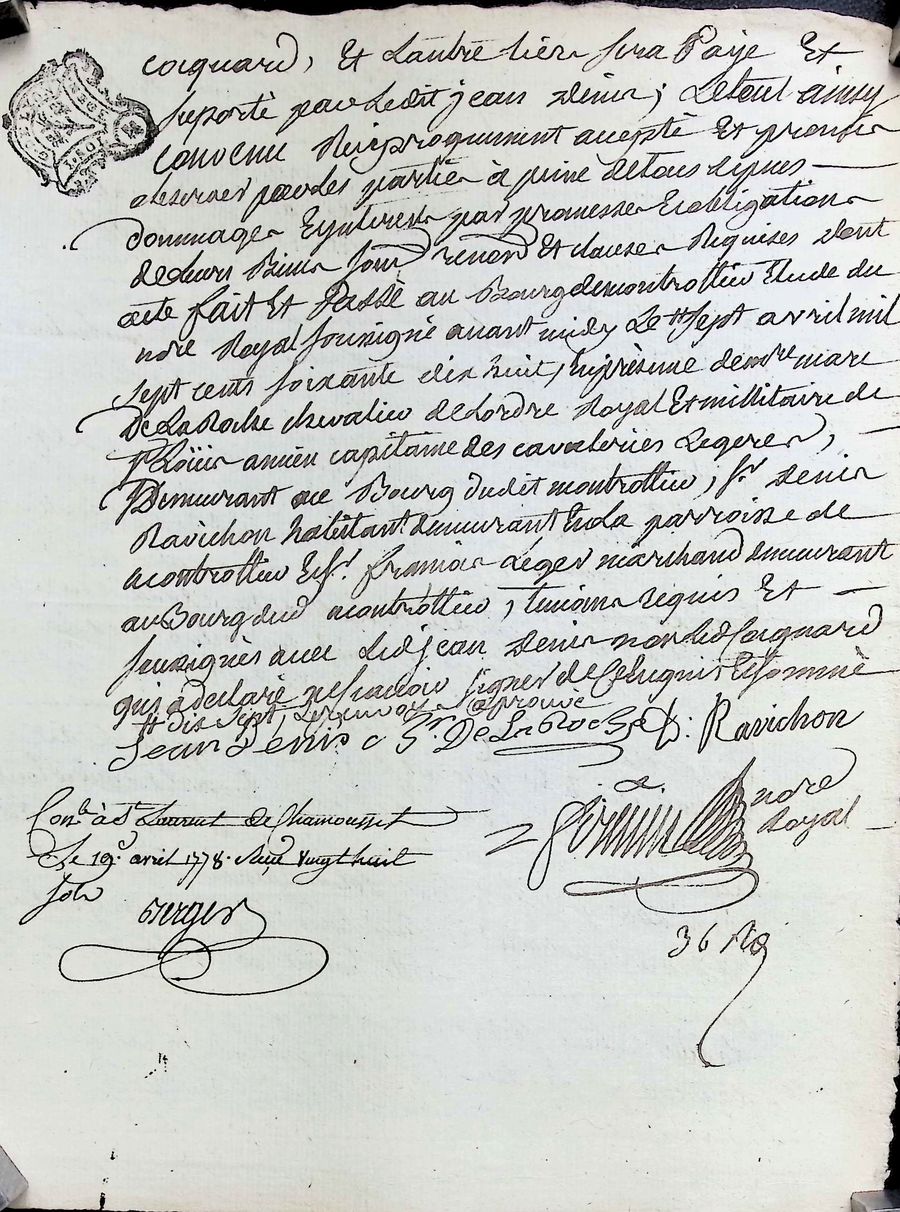 coquard, Et L'autre tier sera Payé Et
suporté par Ledit jean Denis; Le tout ainsy
Convenu Reciproquement accepté Et promis
observer par les parties à peine de tous depens
dommages Eynterest par promesses Eobligation
de Leurs Biens renond Et clauses Requises dont
acte fait Et Passé au Bourg de montrottier Etude du
nore Royal soussigné avant midy Le # Sept avril mil
sept cents soixante dix huit, En présence de mre marc
De La Roche chevalier de Lordre Royal Et millitaire de
st Loüis ancien capitaine des cavaleries Legeres,
Demeurant au Bourg dudit montrottier, sr. Denis
Ravichon habitant demeurant En la parroisse de
montrottier Et sr. francois Léger marchand demeurant
au Bourg dud montrottier, temoins requis Et
soussignés avec Led jean Denis non Led Coquard
qui a declaré ne scavoir signer de Ce Enquis Et sommé
# dix Sept, Le renvoy aprouvé
Jean Denis DeLaRoche D: Ravichon
nore
Royal
Conlé à St Laurent de Chamousset
Le 19e. avril 1778. Reçu Vingt huit
sols
Berger
36